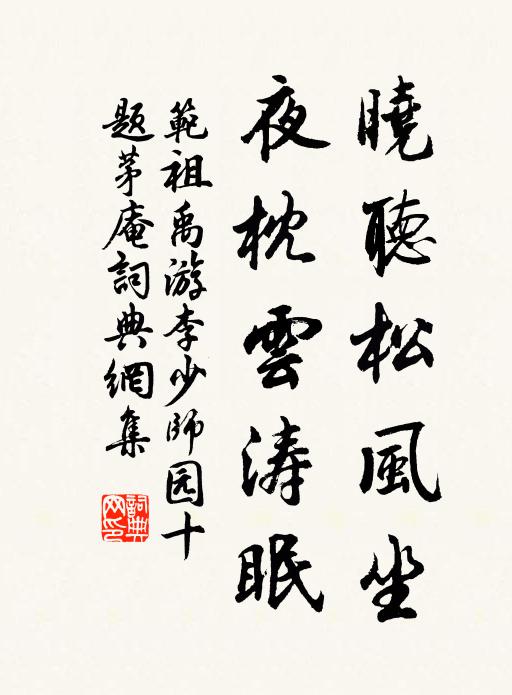 曉聽松風坐
夜枕雲濤眠
範祖禹游李少師园十
題茅庵詞典網集
詞典網印